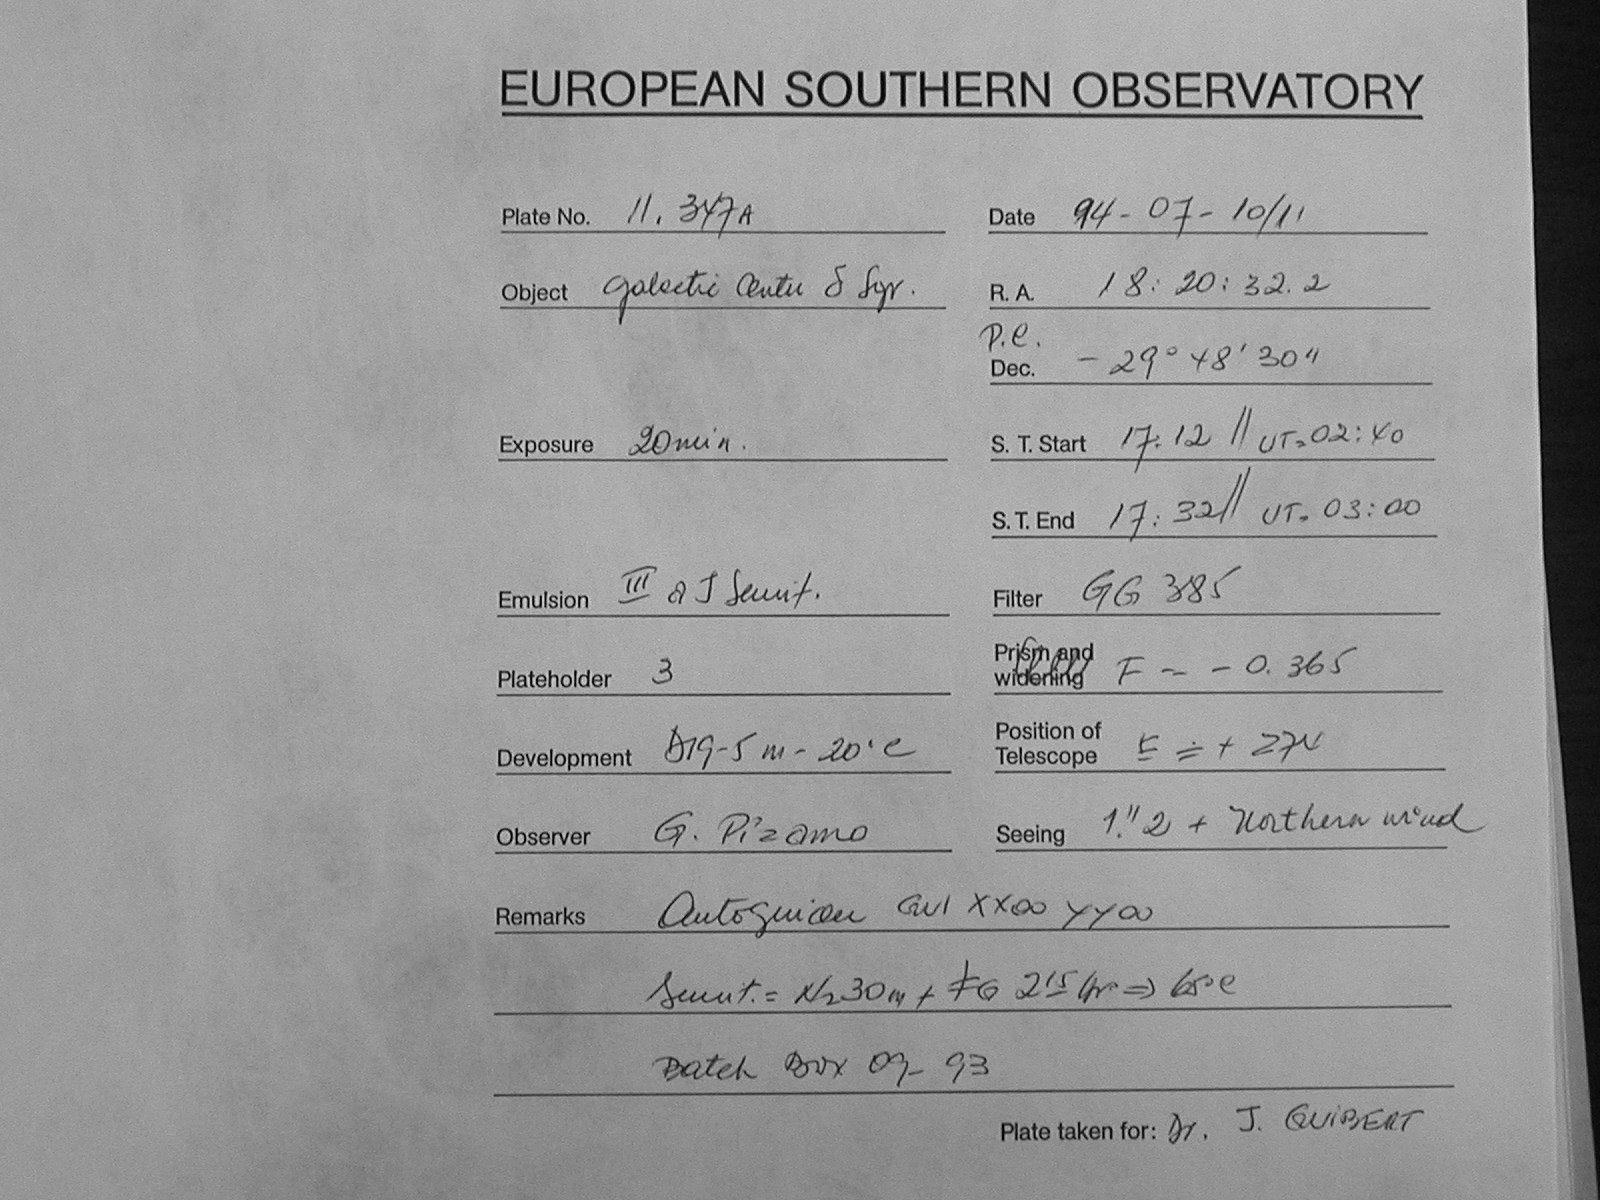 EUROPEAN SOUTHERN OBSERVATORY
Plate No. 11.347A Date 94-07-10/11
Object galactic Center δ Sgr. R. A. 18:20:32.2
P.e.
Dec. -29° 48' 30"
Exposure 20min. S. T. Start 17:12 // UT=02:40
S. T. End 17:32 // UT= 03:00
Emulsion III a J Sensit. Filter GG 385
Plateholder 3 Prism and widening F = -0.365
Development D19-5m-20°C Position of Telescope E = + 274
Observer G. Pizarro Seeing 1."2 + Northern wind
Remarks Autoguider XX00 YY00
Sensit.= N2 30m + FG 215 hr => 65°C
Batch Box 09-93
Plate taken for: Dr. J. GUIBERT